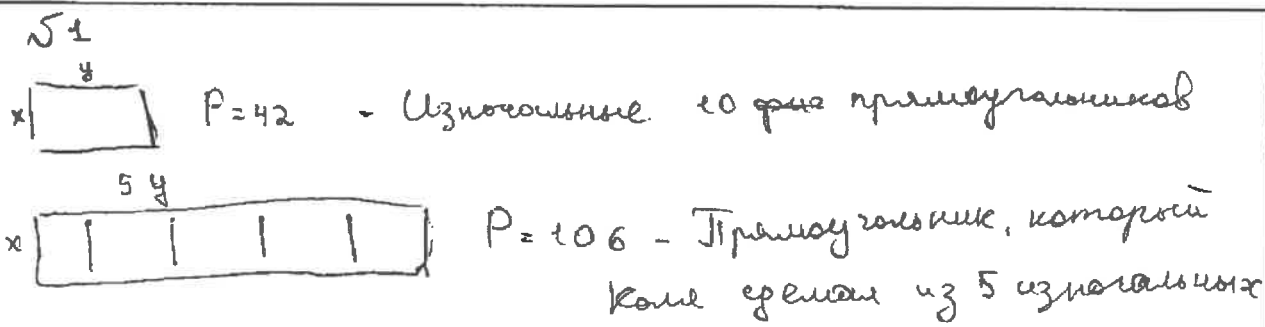 №1
y
x P=42 - Изночальные 10 прямоугольников
5 y
x P=106 - Прямоугольник, который
Коля сделал из 5 изночальных